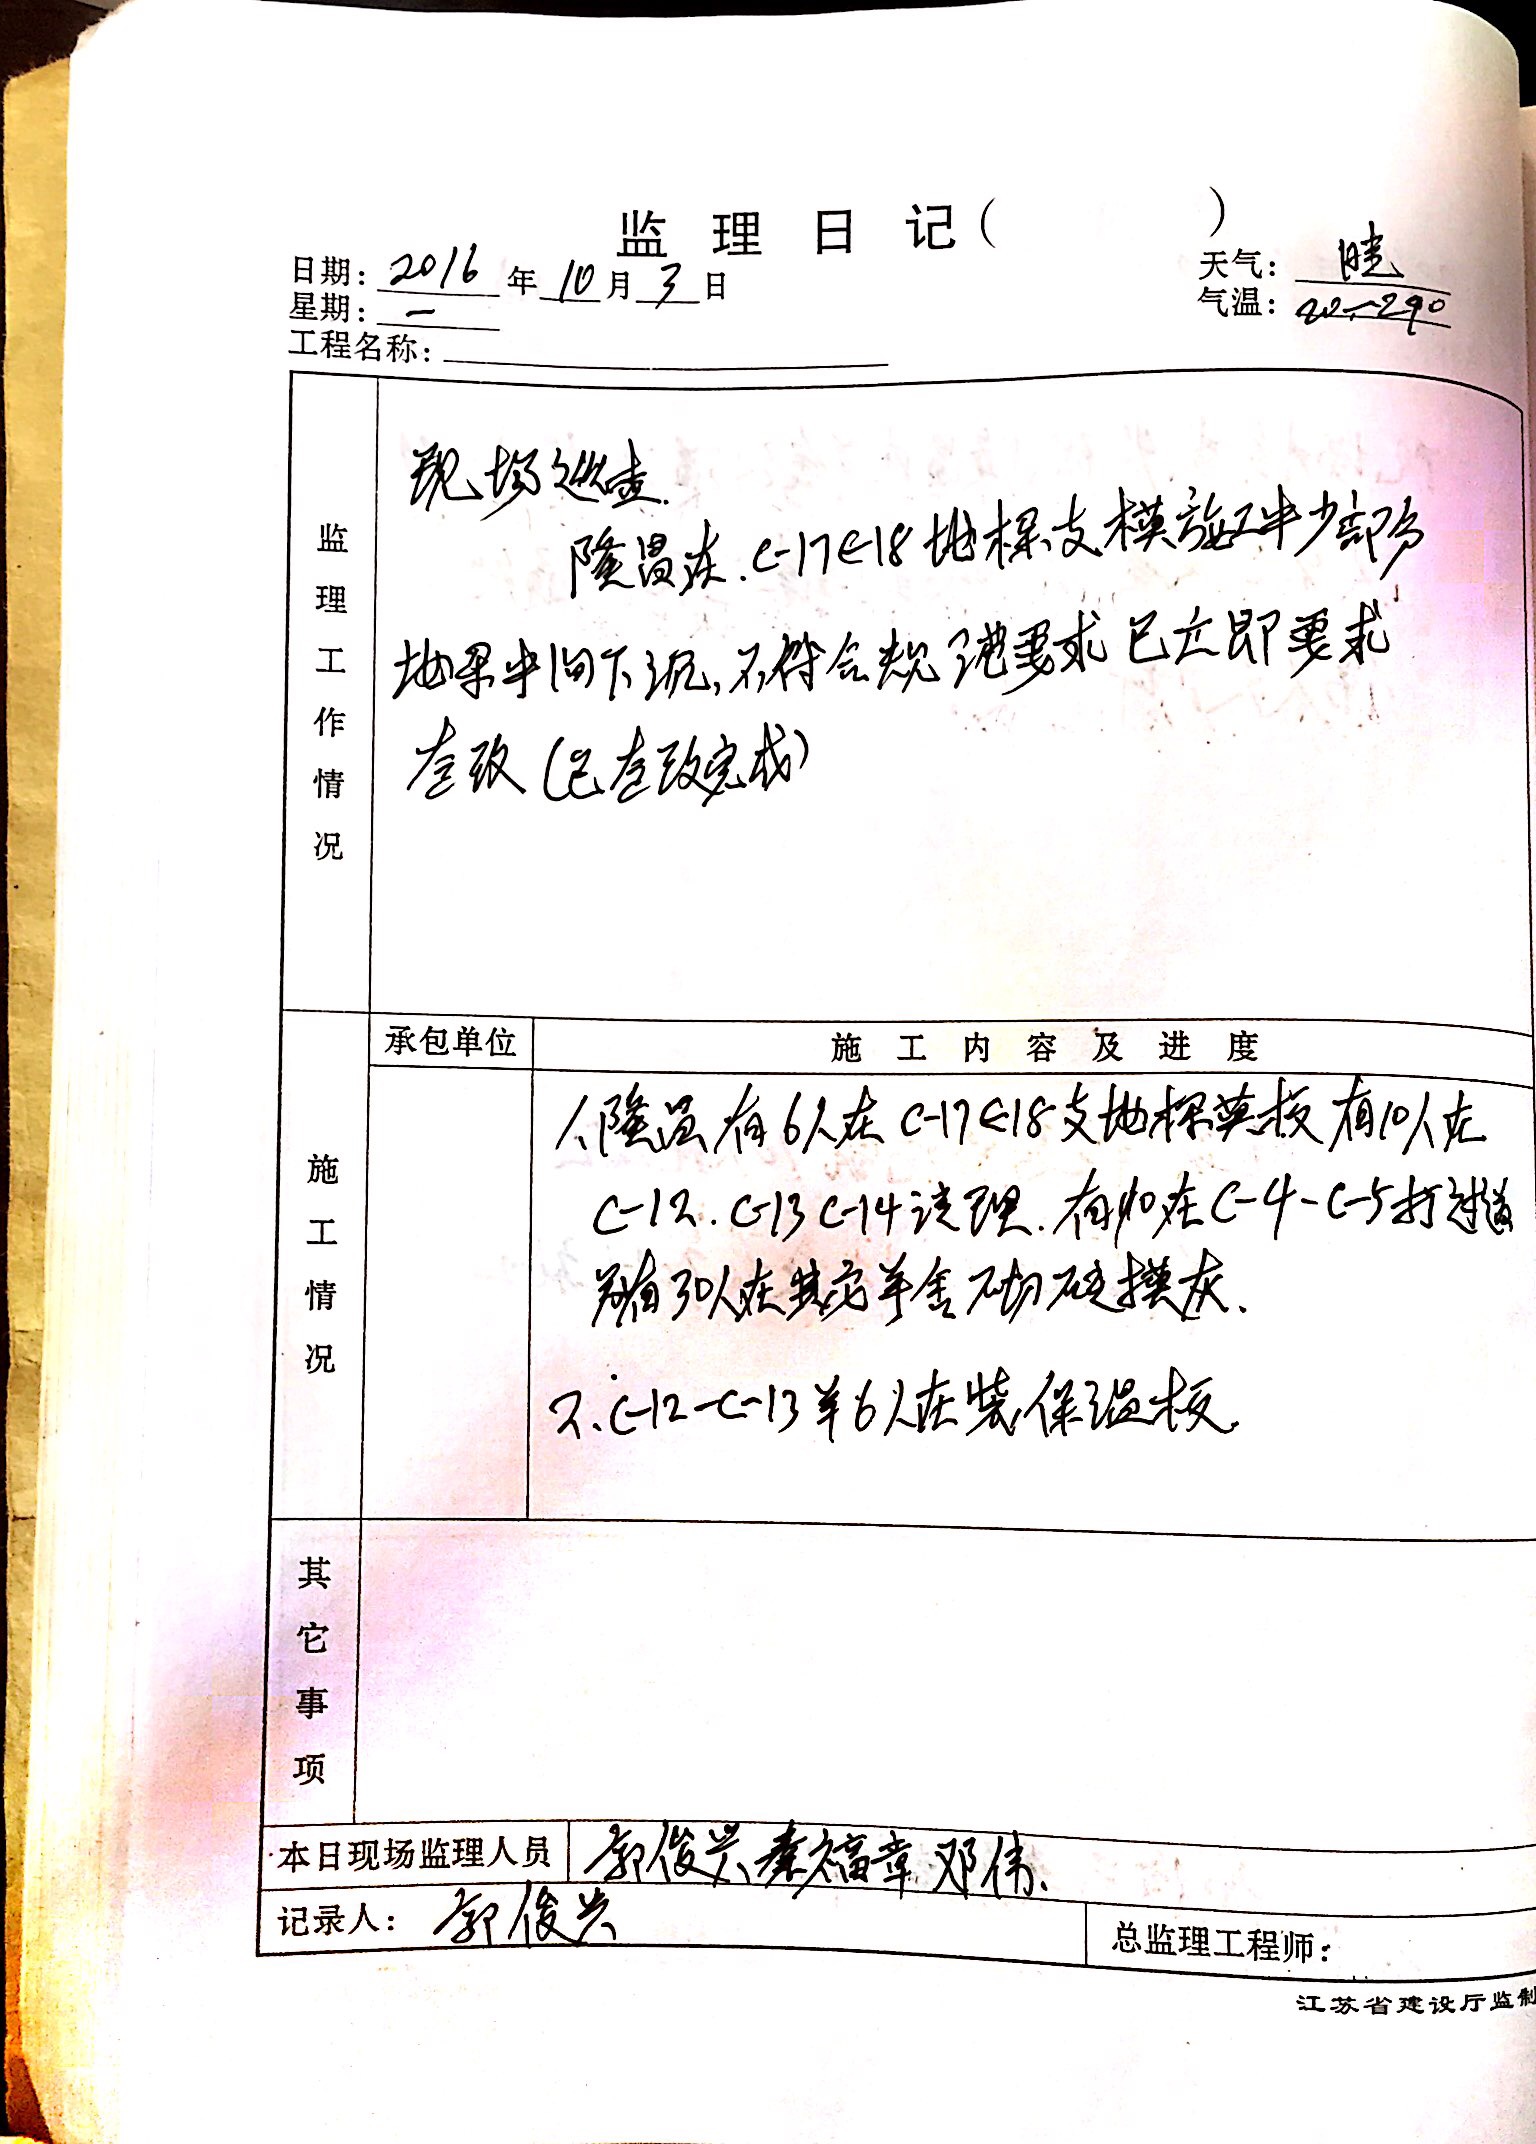 监理日记（ ）
日期：2016年10月3日 天气：晴
星期：一 气温：20-290
工程名称：
监理工作情况
现场巡查.
隆昌在.C-17C-18地梁支模施工中少部分
地梁中间下沉,不符合规范要求已立即要求
整改(已整改完成)
施工情况
承包单位 施工内容及进度
1、隆昌有6人在C-17C-18支地梁模板有10人在
C-12.C-13C-14清理.有10在C-4-C-5打过道
另有30人在羊舍砌砖摸灰.
2、C-12-C-13羊6人在装保温板.
其它事项
本日现场监理人员 郭俊兴 秦福章 邓伟.
记录人：郭俊兴 总监理工程师：
江苏省建设厅监制